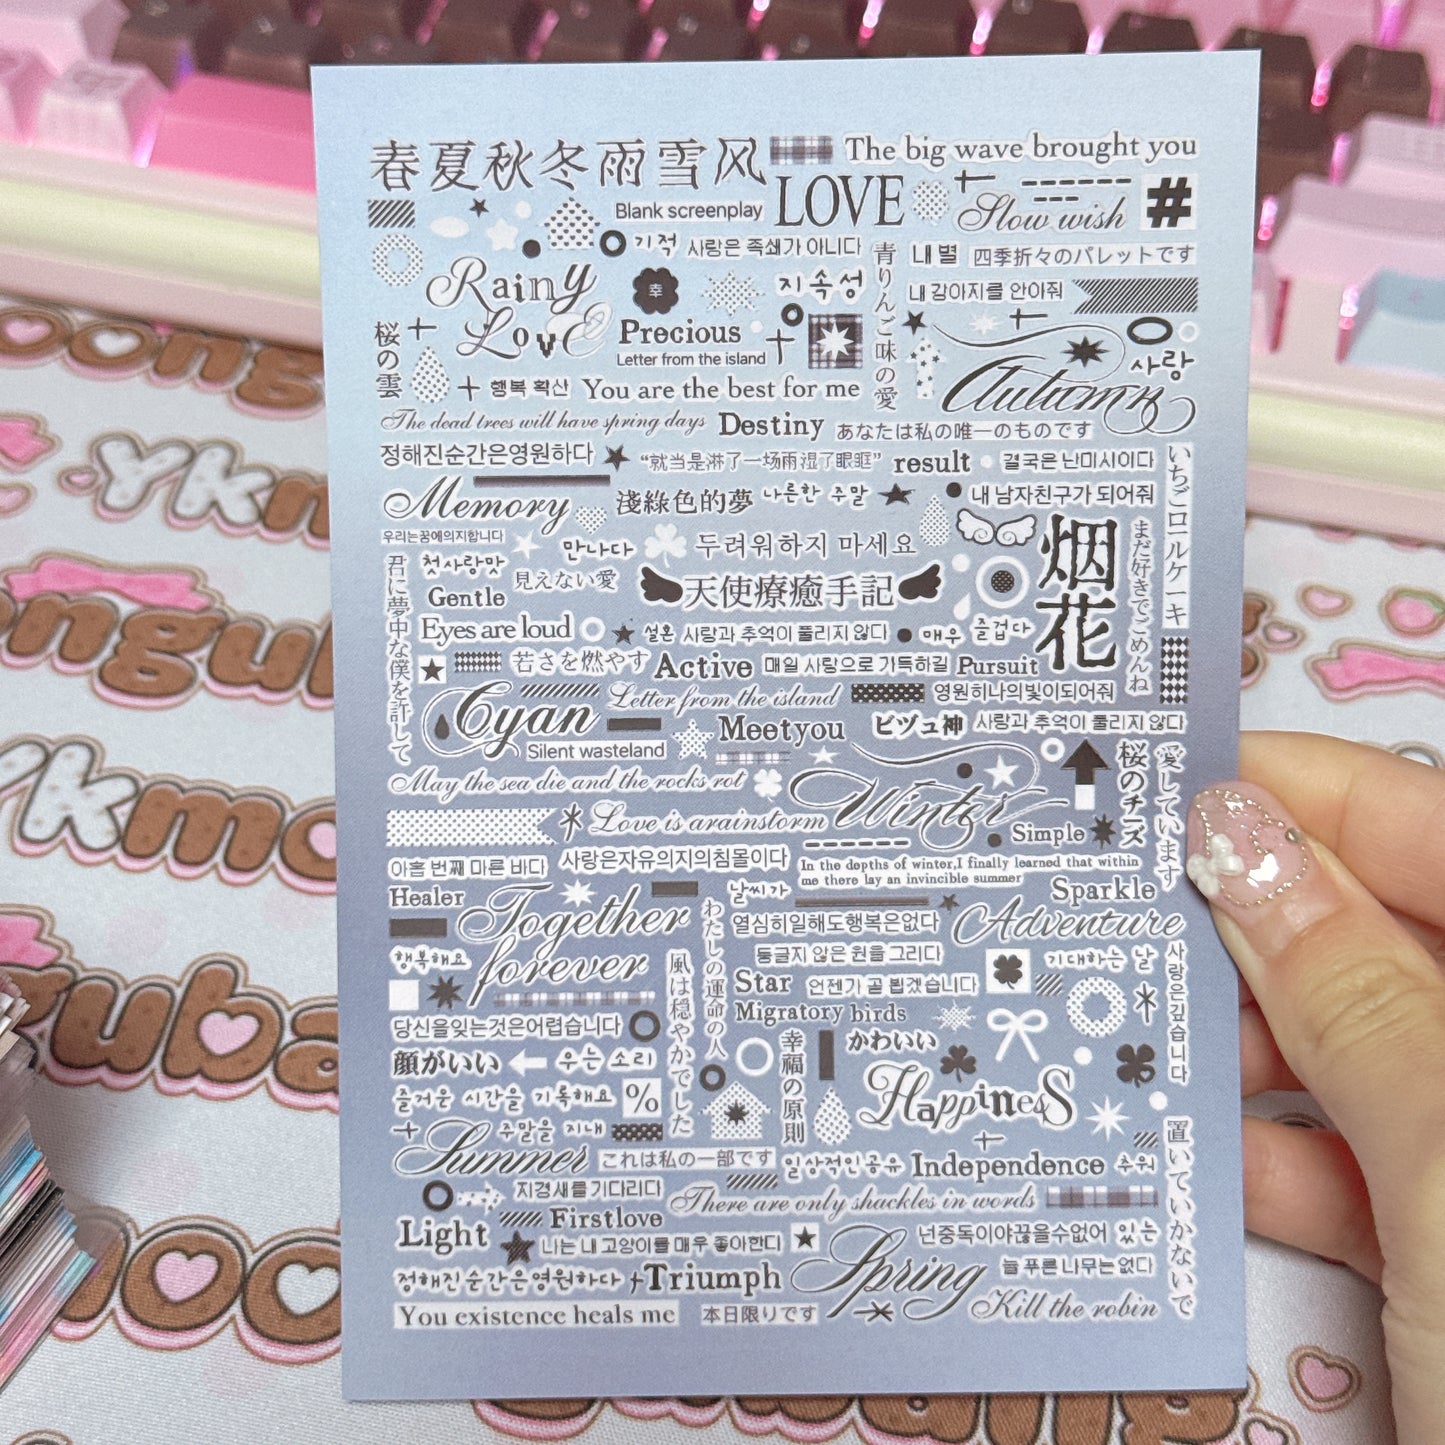 春夏秋冬雨雪风
The big wave brought you
Blank screenplay
LOVE
Slow wish
#
기적
사랑은 족쇄가 아니다
青りんご味の愛
내 별
四季折々のパレットです
Rainy
Love
幸
지속성
내 강아지를 안아줘
桜の雲
Precious
Letter from the island
사랑
행복 확산
You are the best for me
Autumn
The dead trees will have spring days
Destiny
あなたは私の唯一のものです
정해진순간은영원하다
“就当是淋了一场雨湿了眼眶”
result
결국은 난미시이다
いちごロールケーキ
Memory
淺綠色的夢
나른한 주말
내 남자친구가 되어줘
우리는꿈에의지합니다
만나다
두려워하지 마세요
烟花
まだ好きでごめんね
君に夢中な僕を許して
첫사랑맛
見えない愛
Gentle
天使療癒手記
Eyes are loud
설혼
사랑과 추억이 풀리지 않다
매우 즐겁다
若さを燃やす
Active
매일 사랑으로 가득하길
Pursuit
Cyan
Letter from the island
영원히나의빛이되어줘
Silent wasteland
Meetyou
ビヅュ神
사랑과 추억이 풀리지 않다
May the sea die and the rocks rot
Winter
桜のチーズ
愛しています
Love is arainstorm
Simple
아홉 번째 마른 바다
사랑은자유의지의침몰이다
In the depths of winter,I finally learned that within
me there lay an invincible summer
Healer
Together
forever
날씨가
Sparkle
わたしの運命の人
열심히일해도행복은없다
Adventure
행복해요
風は穏やかでした
둥글지 않은 원을 그리다
기대하는 날
사랑은깊습니다
Star
언젠가 곧 뵙겠습니다
Migratory birds
당신을잊는것은어렵습니다
顔がいい
우는 소리
幸福の原則
かわいい
즐거운 시간을 기록해요
%
Happiness
Summer
주말을 지내
これは私の一部です
일상적인공유
Independence
추워
置いていかないで
지경새를기다리다
There are only shackles in words
Light
Firstlove
나는 내 고양이를 매우 좋아한디
Spring
넌중독이야끊을수없어 있는
늘 푸른 나무는없다
정해진순간은영원하다
Triumph
You existence heals me
本日限りです
Kill the robin